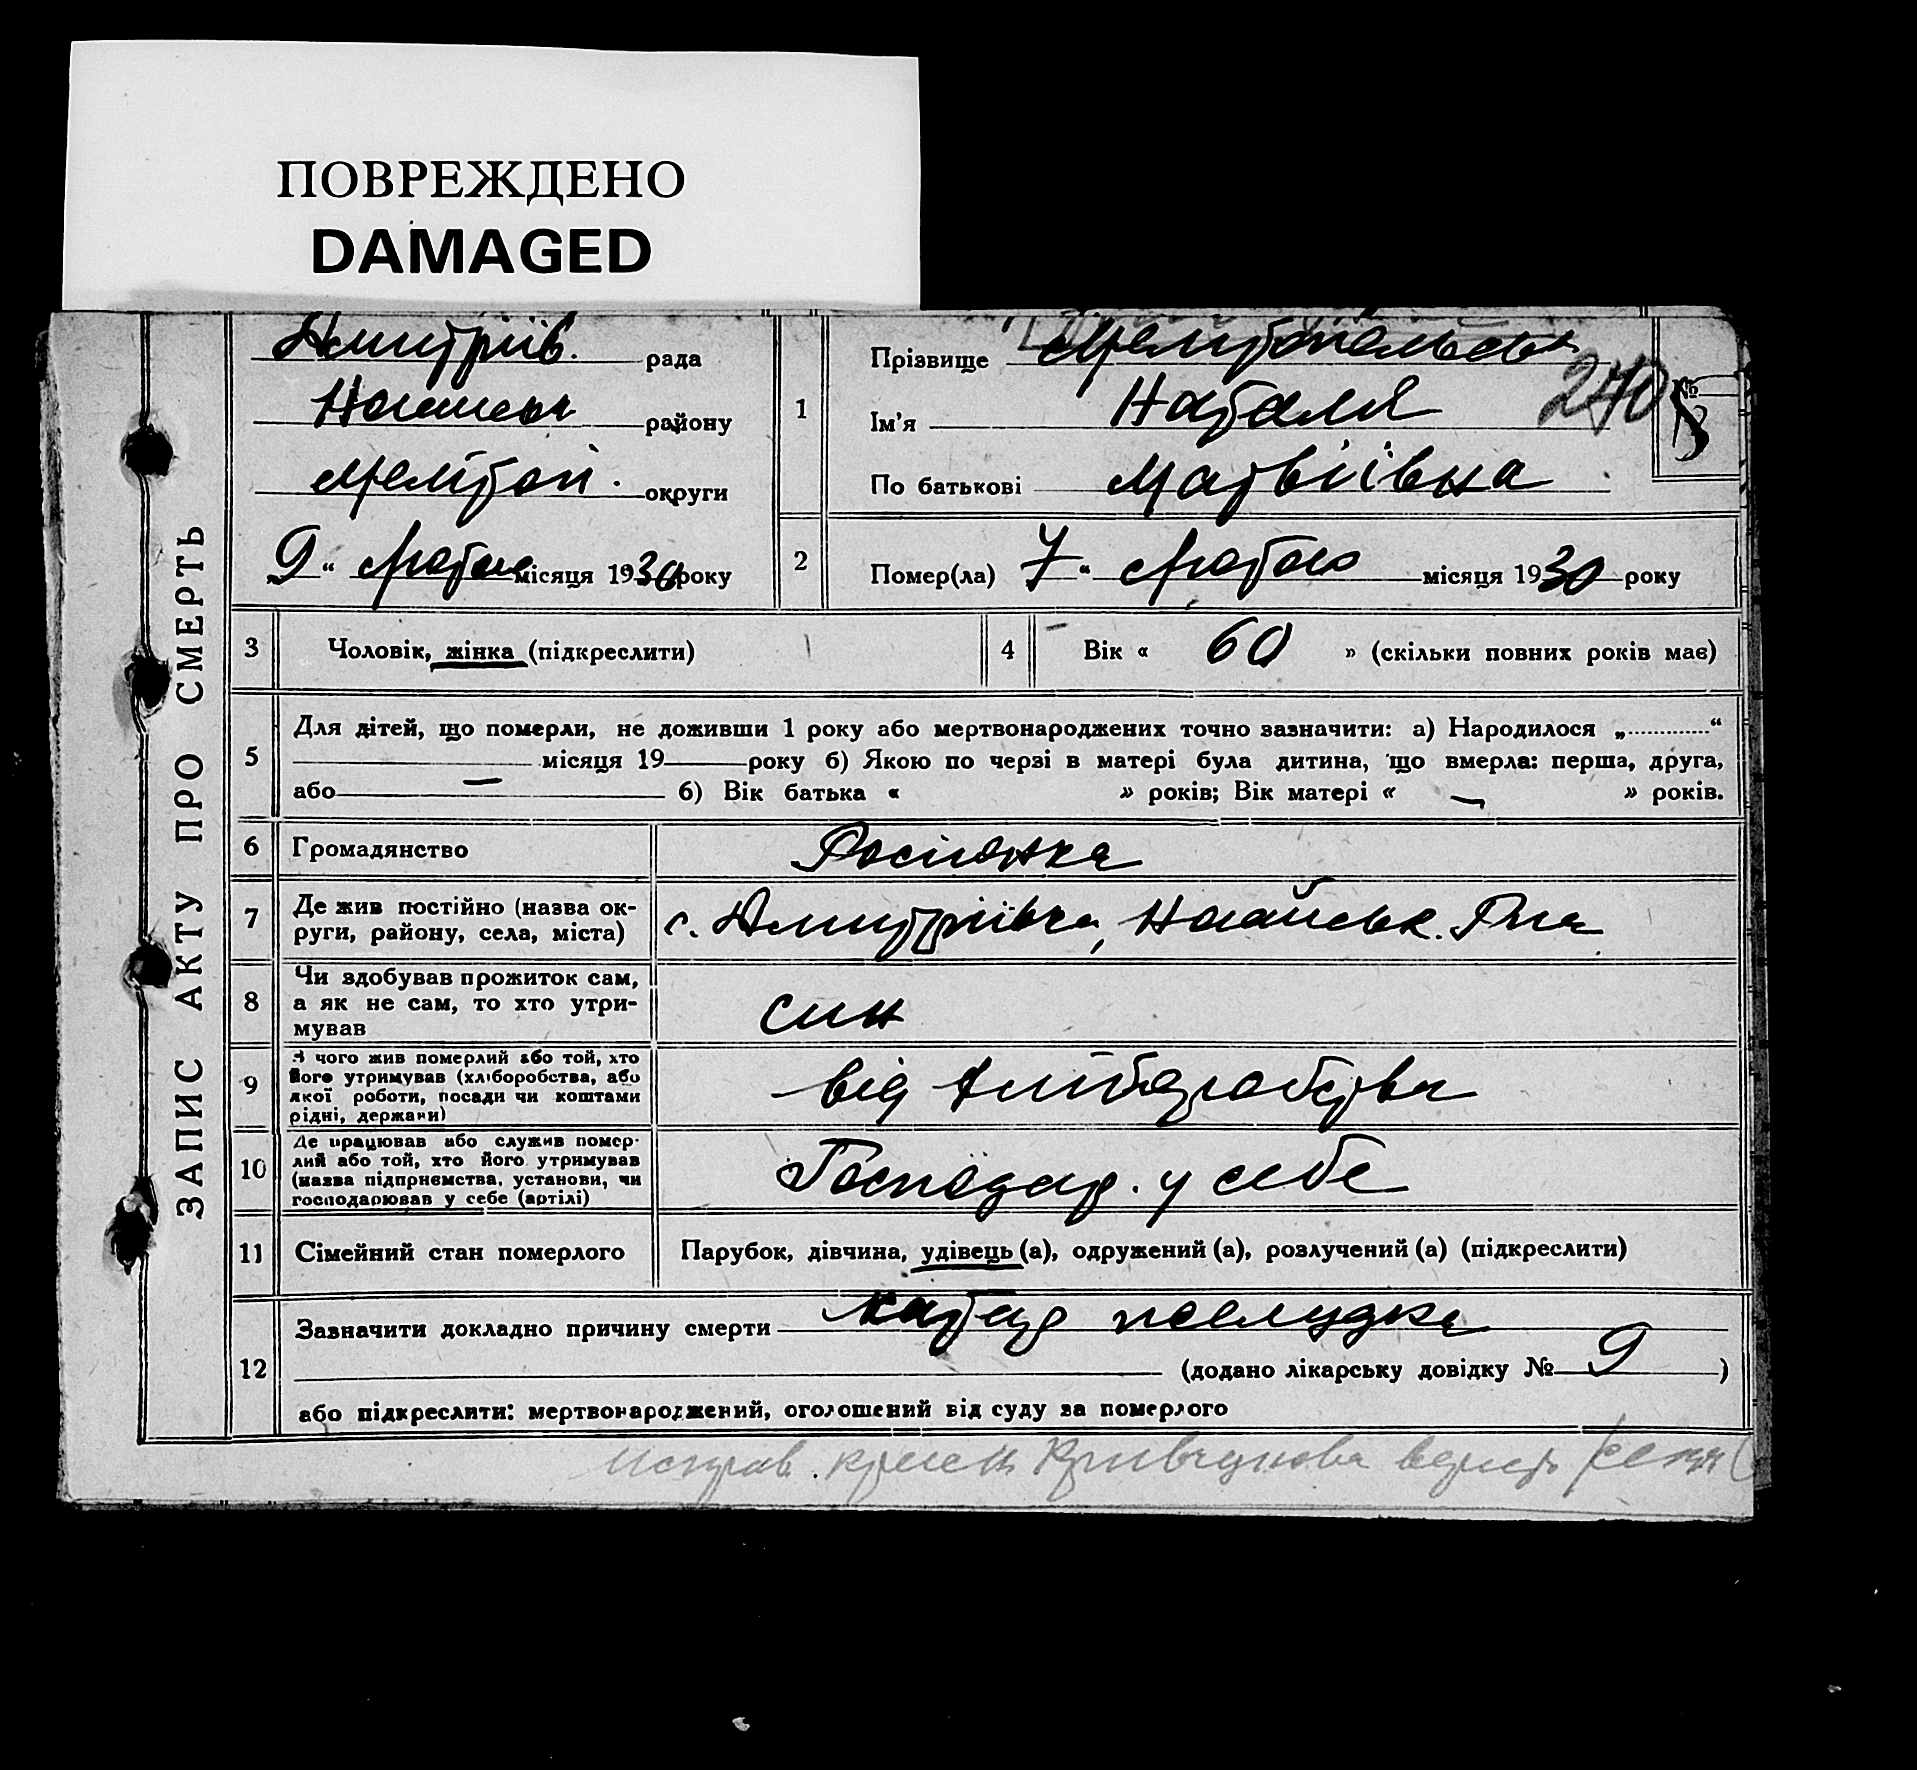 ПОВРЕЖДЕНО
DAMAGED
ЗАПИС АКТУ ПРО СМЕРТЬ
Дмитріїв. рада
району
Мелітоп. округи
9 " лютого місяця 1930 року
1
Прізвище Мелитопольськ
Ім'я Наталя
По батькові Матвіївна
№ 8
270
2 Помер(ла) 7 " лютого місяця 1930 року
3 Чоловік, жінка (підкреслити)
4 Вік « 60 » (скільки повних років має)
5 Для дітей, що померли, не доживши 1 року або мертвонароджених точно зазначити: а) Народилося „ “
місяця 19 року б) Якою по черзі в матері була дитина, що вмерла: перша, друга,
або — 6) Вік батька « » років; Вік матері « — » років.
6 Громадянство Росіянка
7 Де жив постійно (назва ок-
руги, району, села, міста)
с. Дмитріївка, Ногайськ. Р-на
8 Чи здобував прожиток сам,
а як не сам, то хто утри-
мував
син
9 З чого жив померлий або той, хто
його утримував (хліборобства, або
якої роботи, посади чи коштами
рідні, держави)
від хліборобства
10 Де працював або служив помер-
лий або той, хто його утримував
(назва підприємства, установи, чи
господарював у себе (артілі)
Господар. у себе
11 Сімейний стан померлого
Парубок, дівчина, удівець (а), одружений (а), розлучений (а) (підкреслити)
12 Зазначити докладно причину смерти катар желудка
(додано лікарську довідку № 9 )
або підкреслити: мертвонароджений, оголошений від суду за померлого